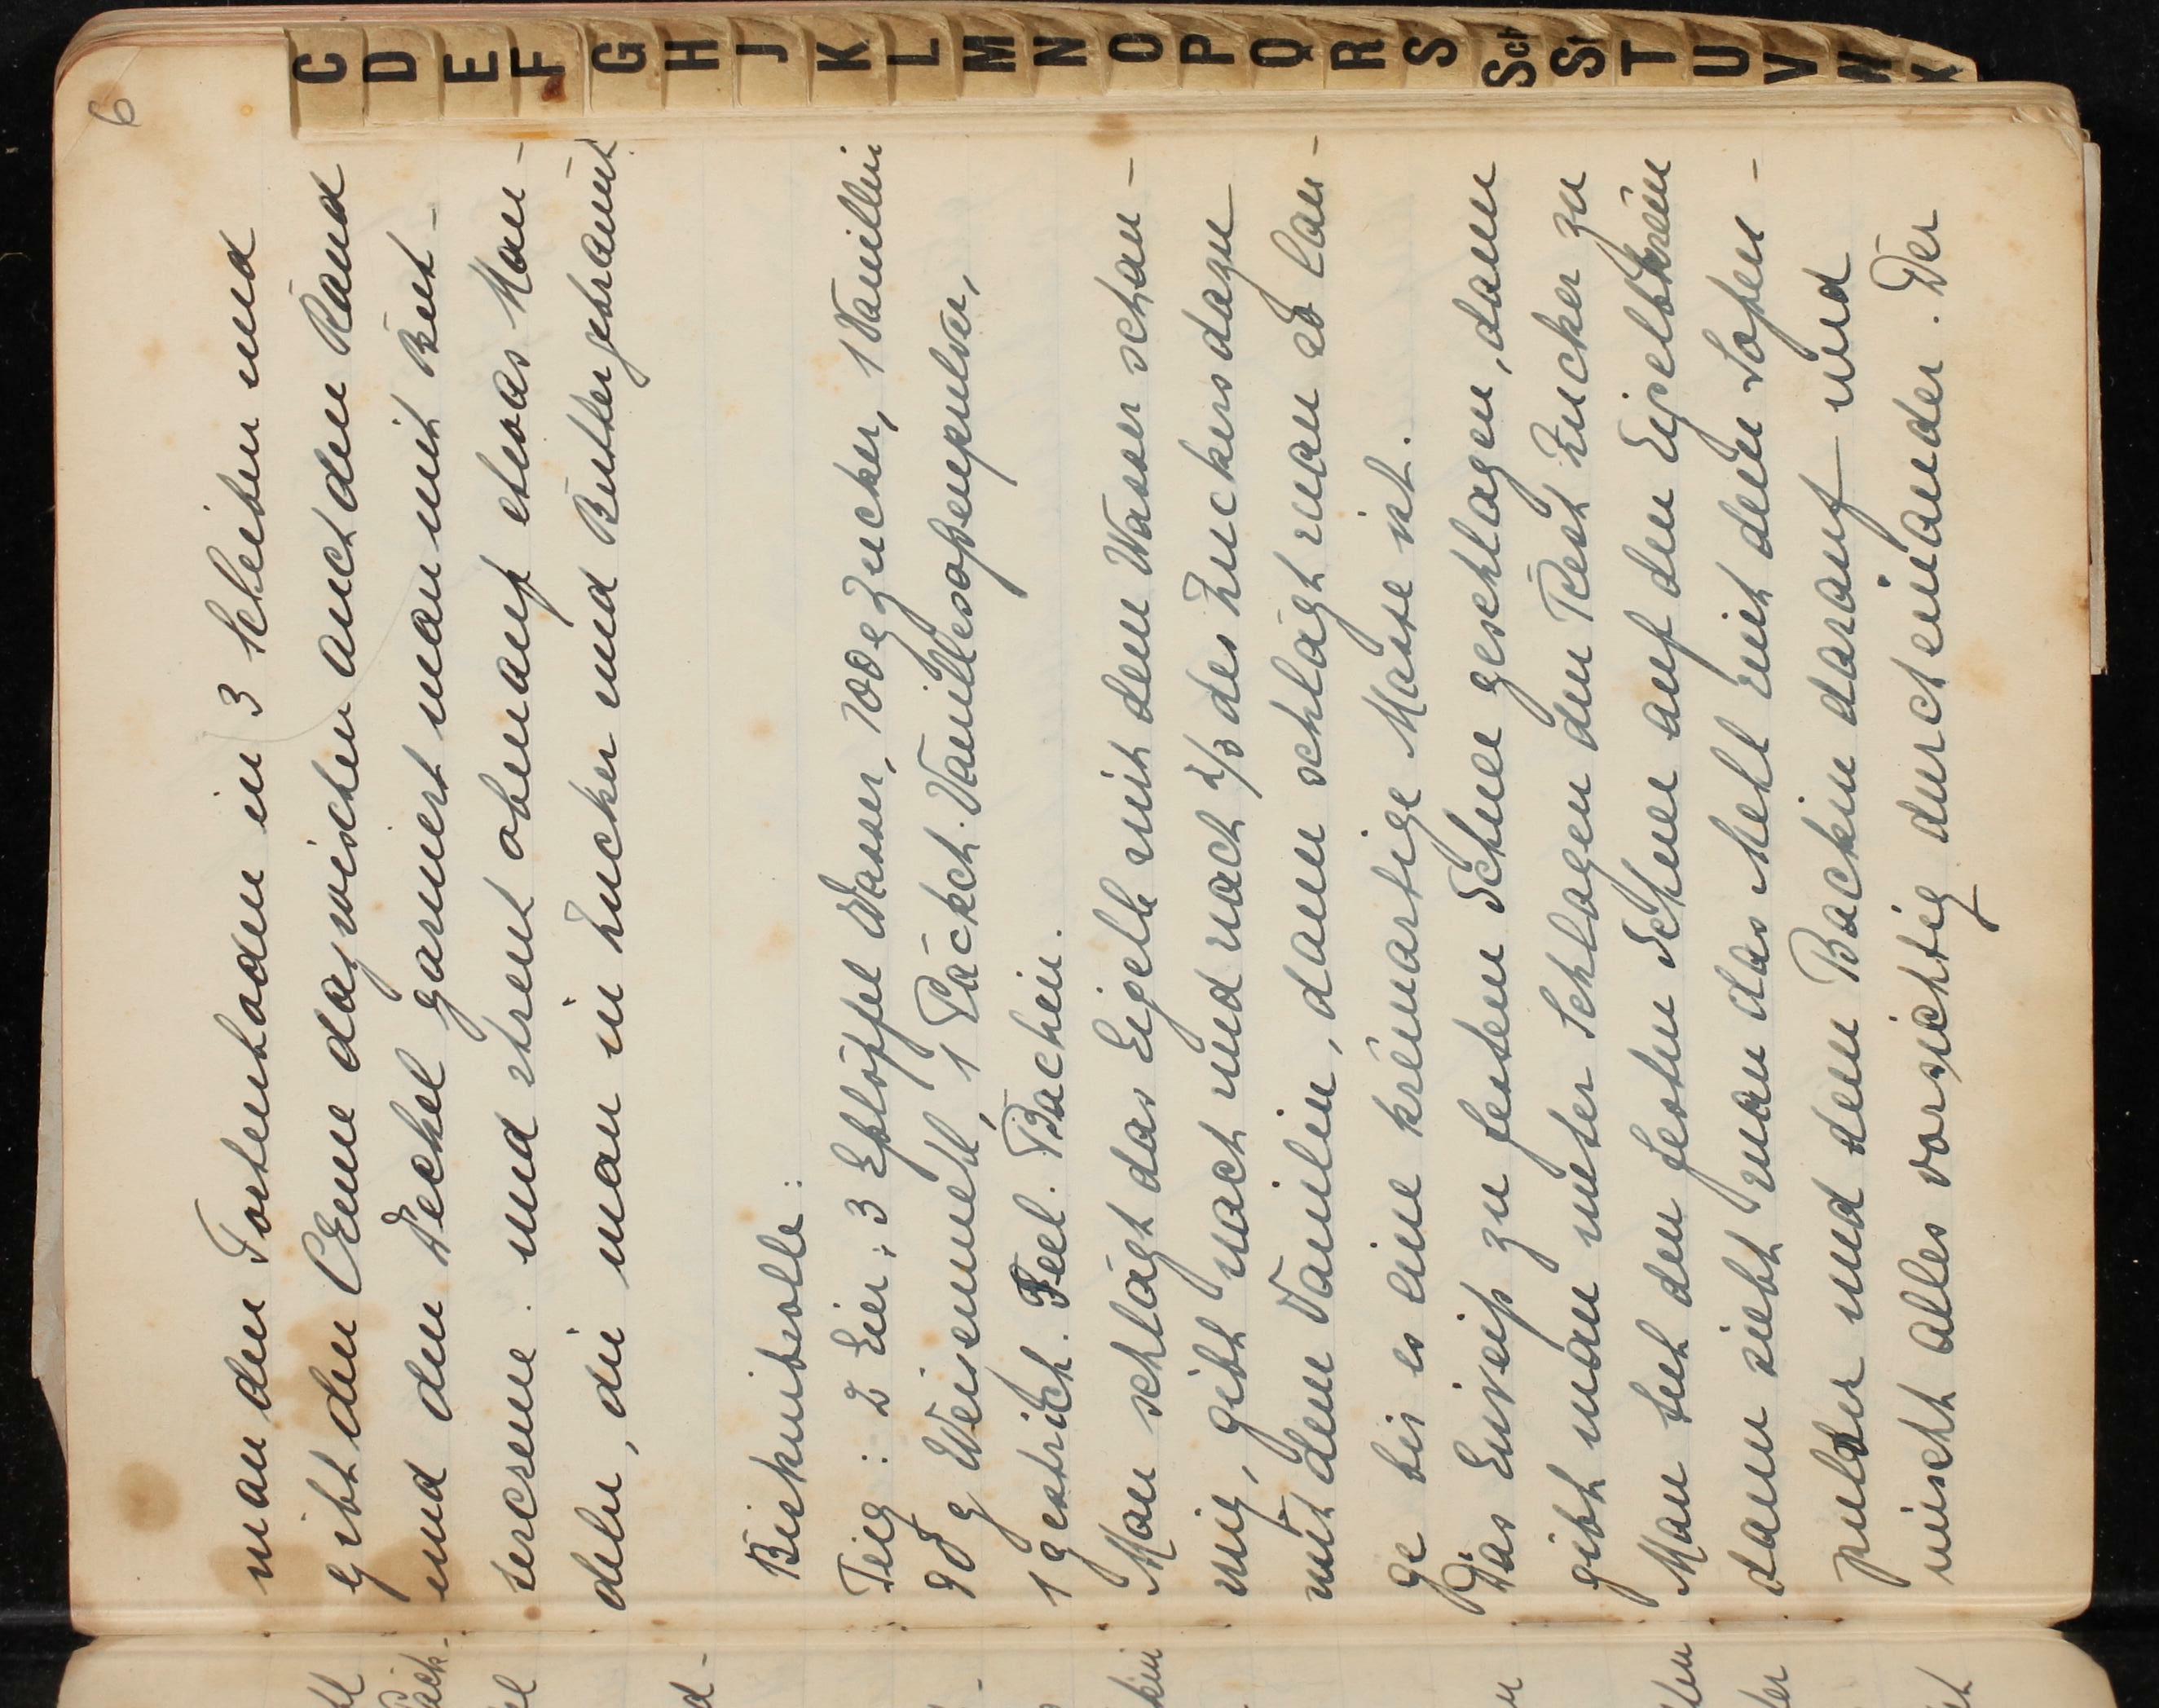 6
man den Tortenboden in 3 Scheiben und
gibt den Creme dazwischen auch den Rand
und den Deckel garniert man mit But-
tercreme. und streut obenauf etwas Man-
deln, die man in Zucker und Butter gebräunt.
Biskuitrolle:
Teig: 2 Eier; 3 Eßlöffel Wasser, 100 g Zucker, 1 Vanillin
90 g Weisemehl, 1 Päckch. Vanillesoßenpulver,
1 gestrich. Teel. Backin.
Man schlägt das Eigelb mit dem Wasser schau-
mig, gibt nach und nach 2/3 des Zuckers dazu
mit dem Vanilin, dann schlägt man so lan-
ge bis es eine kremartige Masse ist.
Das Eiweiß zu festem Schnee geschlagen, dann
gibt man unter Schlagen den Rest Zucker zu
Man tut den festen Schnee auf den Eigelbkrem
dann siebt man das Mehl mit dem Soßen-
pulver und dem Backin darauf und
mischt alles vorsichtig durcheinander. Der
C
D
E
F
G
H
J
K
L
M
N
O
P
Q
R
S
Sch
St
T
U
V
W
X